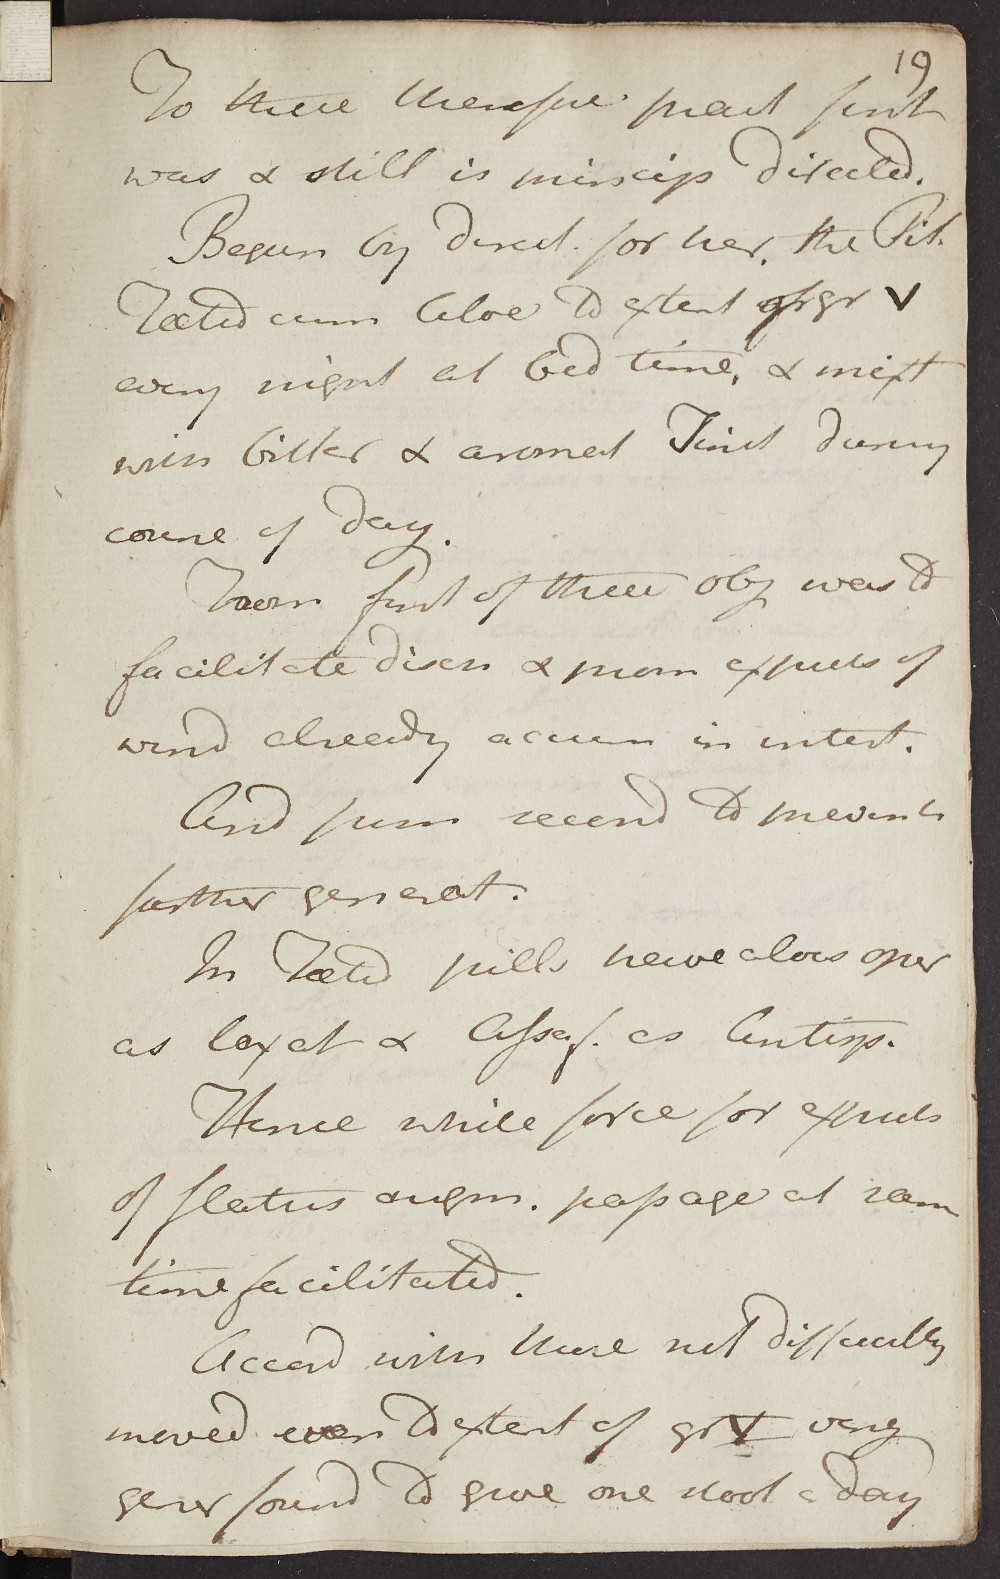 19
To these therefore pract first
was & still is princip directed.
Begun by direct. for her, the Pil.
Foetid cum Aloe to extent of gr V
every night at bed time, & mixt
with bitter & aromat Tinct during
course of day.
From first of these obj was to
facilitate disch & prom expuls of
wind already accum in intest.
And from second to prevent
further generat.
In Foetid pills have aloes oper
as laxat & Assaf. as Antisp.
Hence while force for expuls
of flatus augm. passage at sam
time facilitated.
Accord with these not difficultly
moved even to extent of gr V very
gener found to give one stool a day